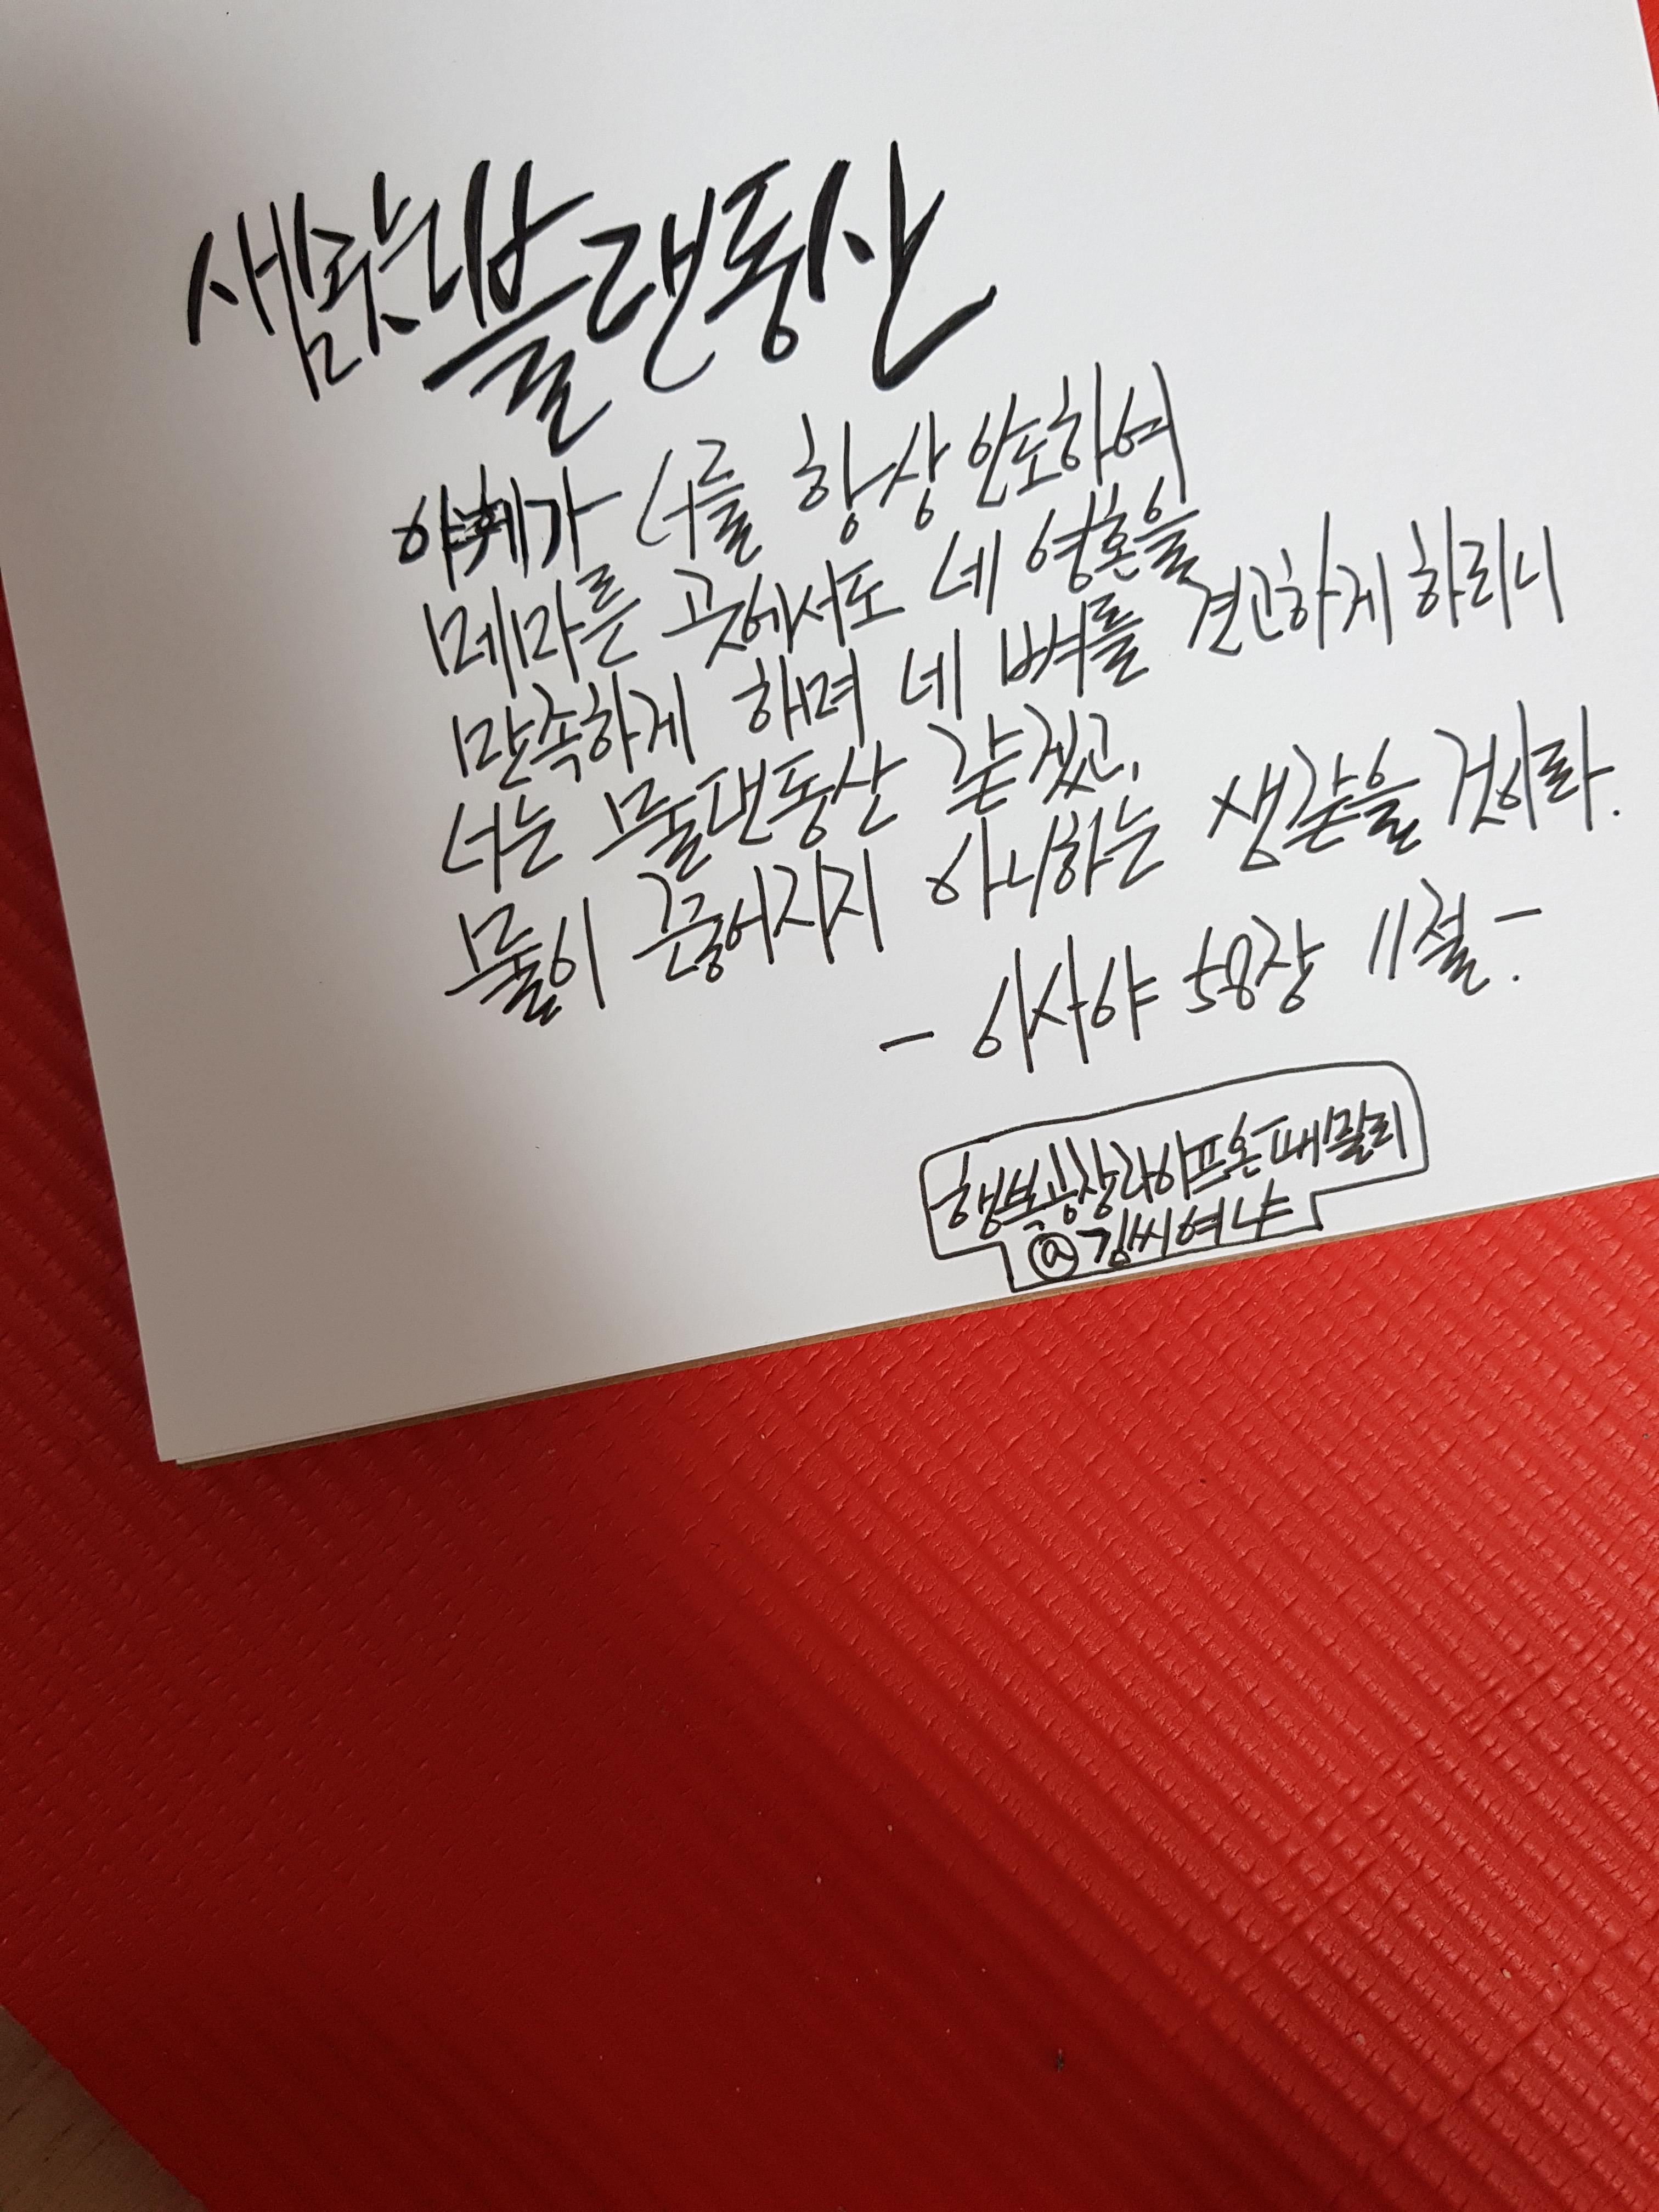 샘솟는 물댄동산
야훼가 너를 항상 인도하여
메마른 곳에서도 네 영혼을
만족하게 하며 네 뼈를 견고하게 하리니
너는 물댄동산 같겠고,
물이 끊어지지 아니하는 샘같을 것이라.
- 이사야 58장 11절 -
행복공장라이프온패밀리
@김씨여냐